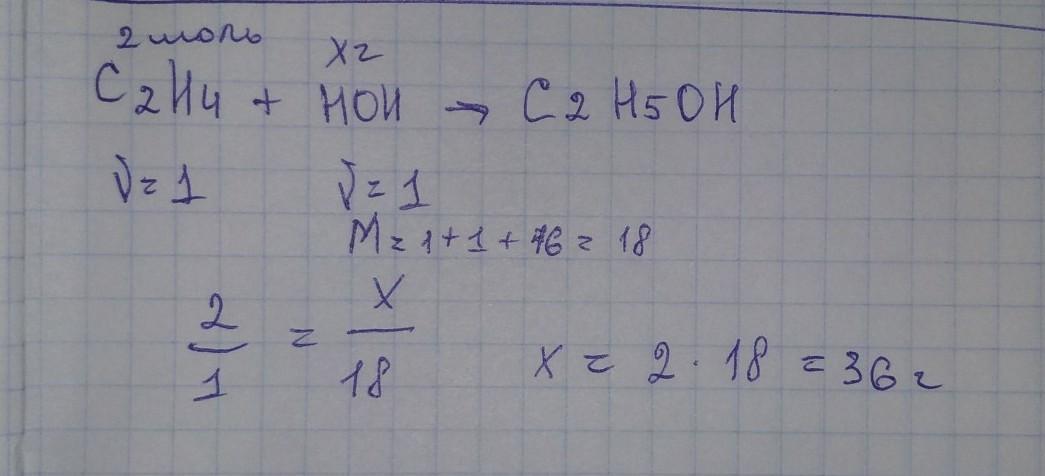 2 моль хг
C2H4 + HOH → C2H5OH
ν = 1 ν = 1
M = 1 + 1 + 16 = 18
2/1 = x/18 x = 2 · 18 = 36 г